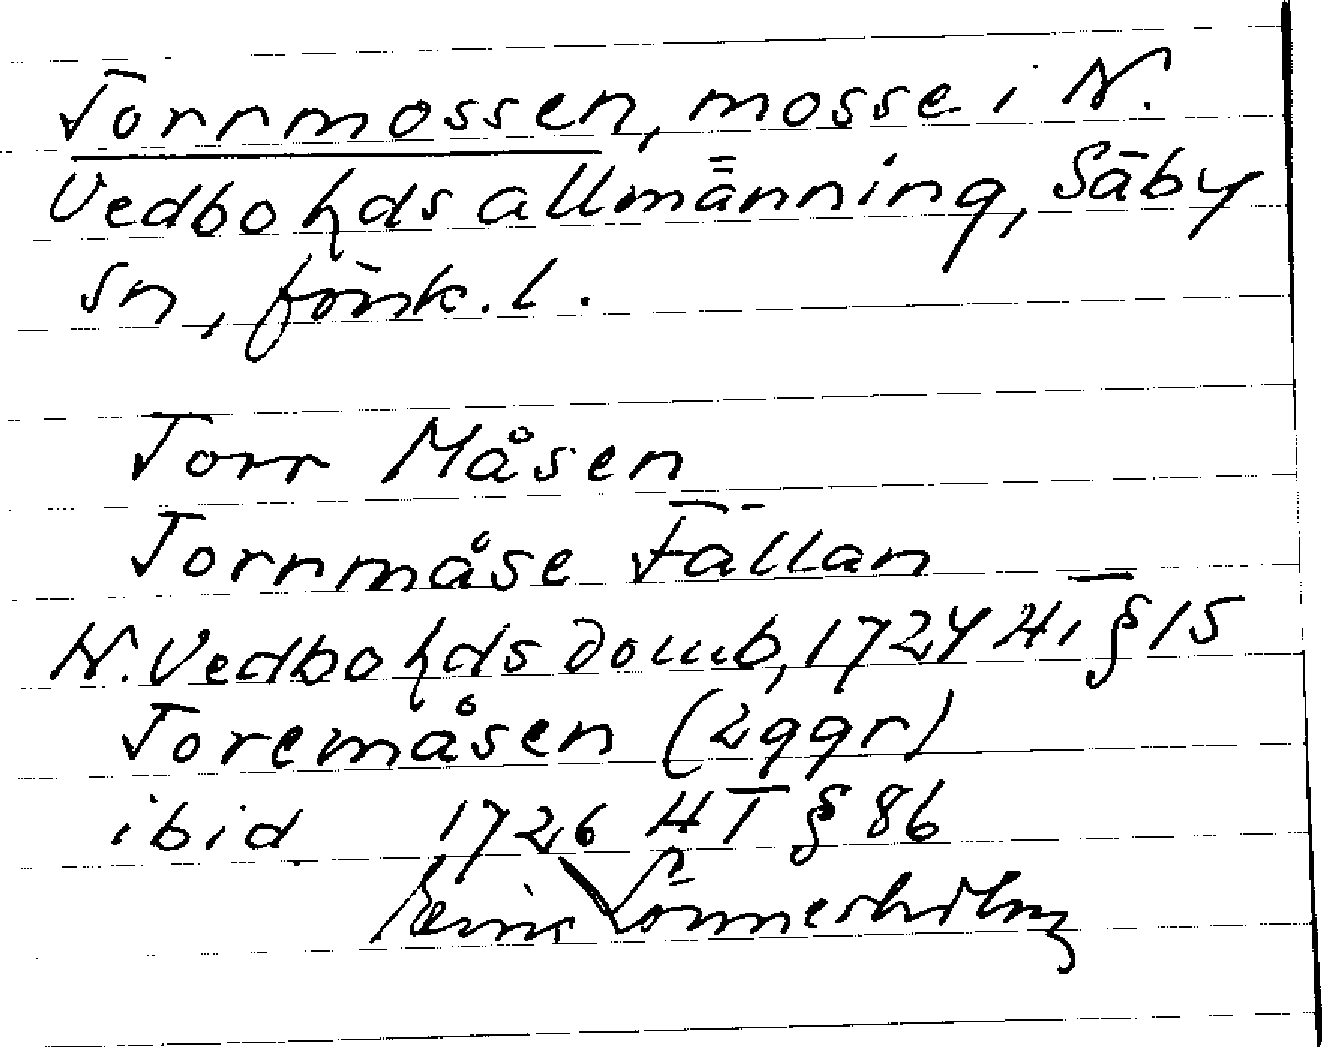 Torrmossen, mosse i N.
Vedbo hds allmänning, Säby
sn, Jönk. l.
Torr Måsen
Tornmåse Fällan
N. Vedbo hds domb, 1724 HT § 15
Toremåsen (2ggr)
ibid 1726 HT § 86